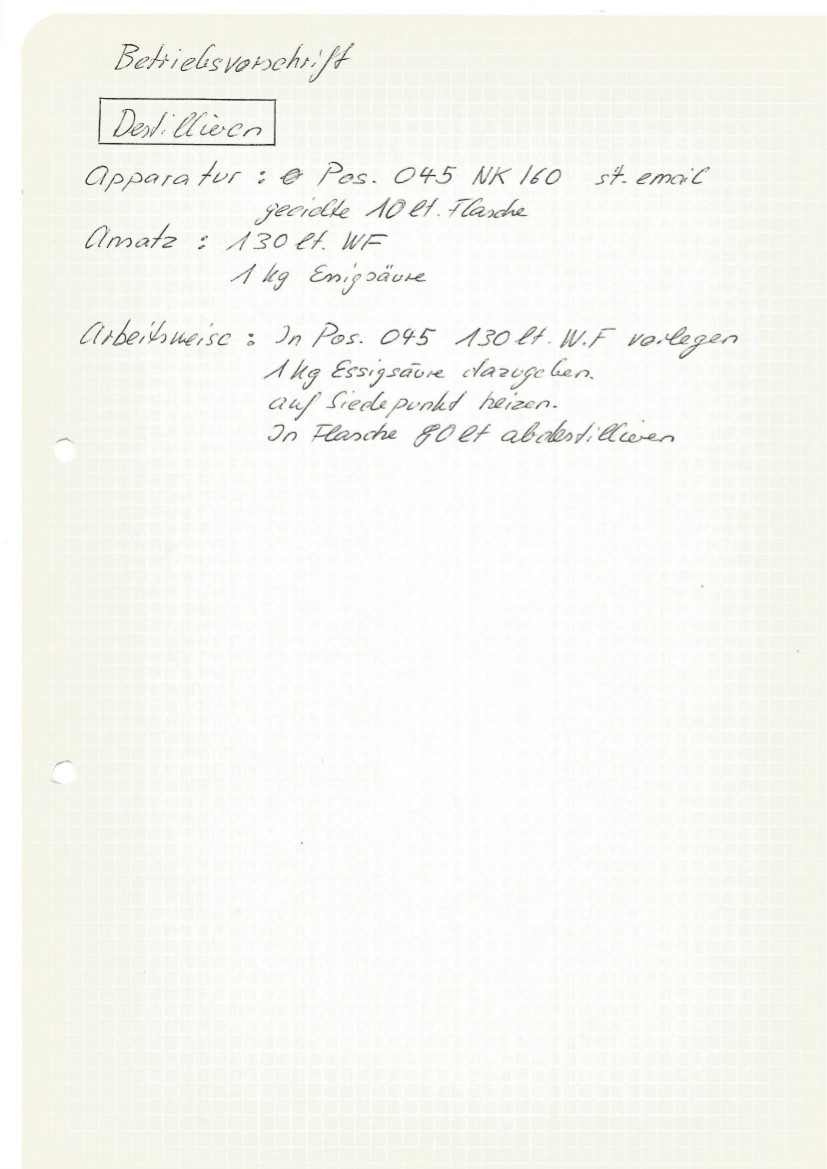 Betriebsvorschrift
Destillieren
Apparatur : Pos. 045 NK 160 st. email
geeichte 10 lt. Flasche
Ansatz : 130 lt. WF
1 kg Essigsäure
Arbeitsweise : In Pos. 045 130 lt. W.F vorlegen
1 kg Essigsäure dazugeben.
auf Siedepunkt heizen.
In Flasche 80 lt abdestillieren